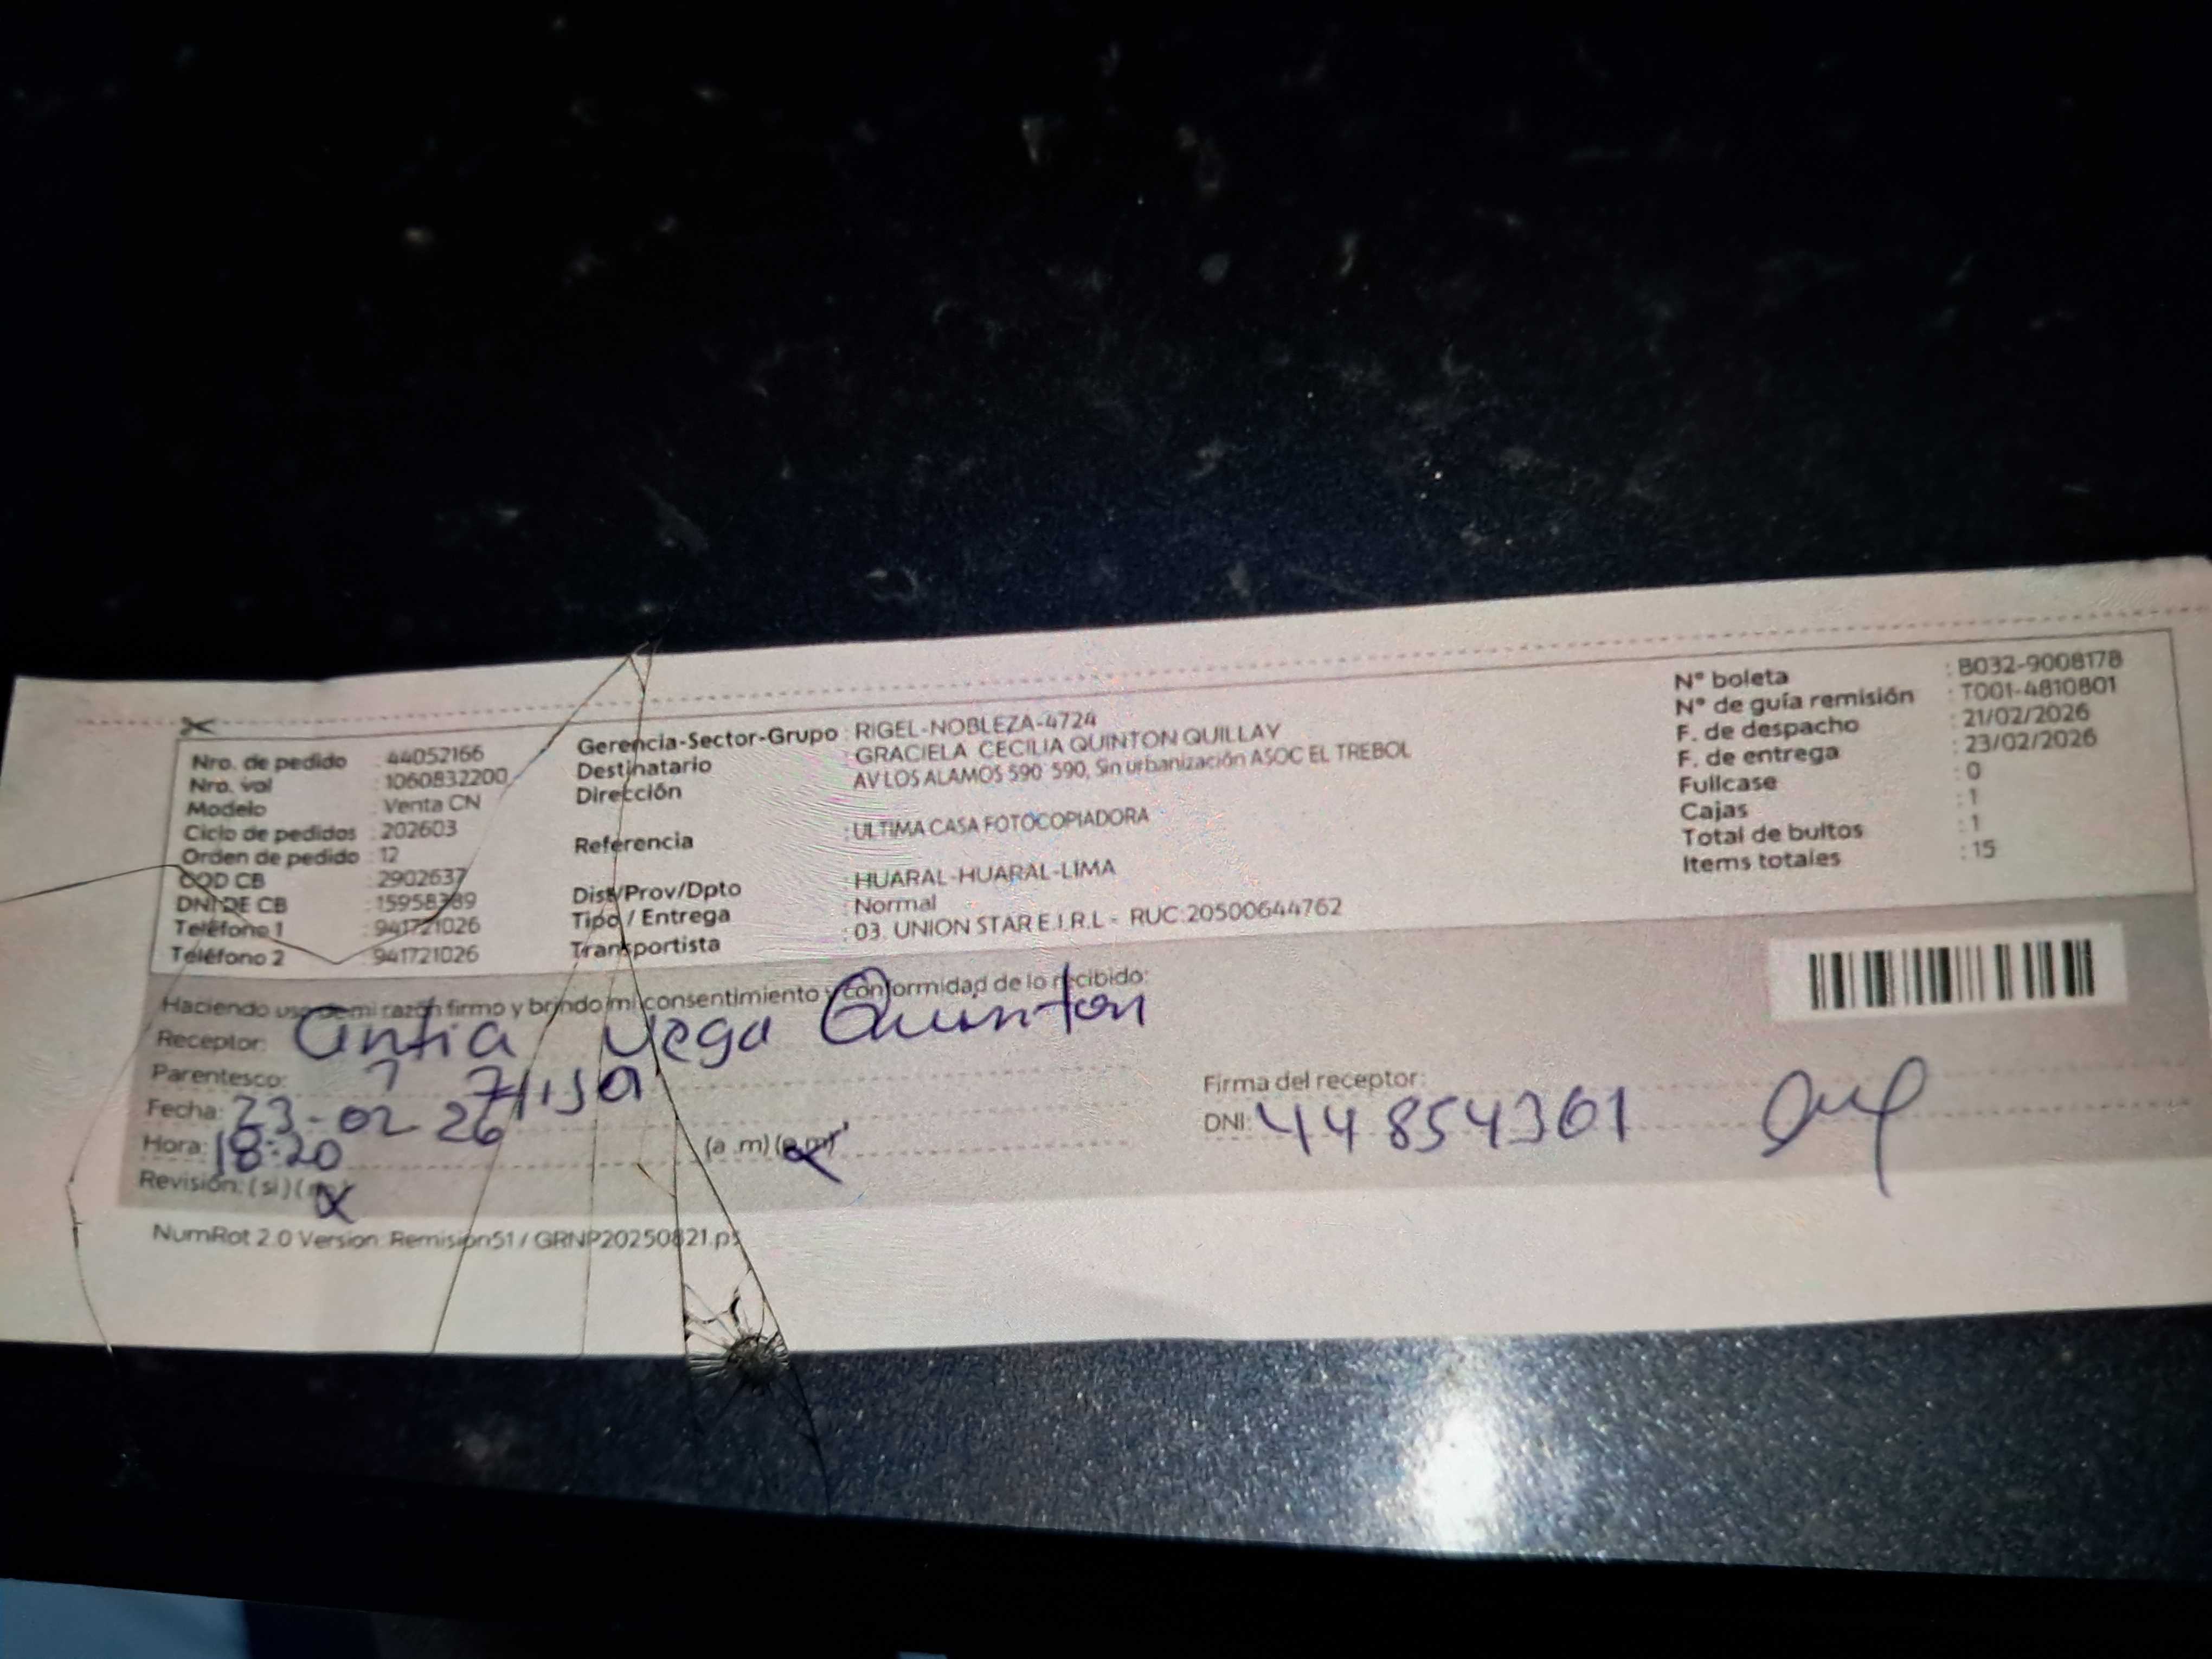 Nro. de pedido : 44052166
Nro. val : 1060832200
Modelo : Venta CN
Ciclo de pedidos : 202603
Orden de pedido : 12
COD CB : 2902637
DNI DE CB : 15958389
Teléfono 1 : 941721026
Teléfono 2 : 941721026
Gerencia-Sector-Grupo : RIGEL-NOBLEZA-4724
Destinatario : GRACIELA CECILIA QUINTON QUILLAY
Dirección AV LOS ALAMOS 590 590, Sin urbanización ASOC EL TREBOL
Referencia : ULTIMA CASA FOTOCOPIADORA
Dist/Prov/Dpto : HUARAL-HUARAL-LIMA
Tipo / Entrega : Normal
Transportista : 03. UNION STAR E.I.R.L - RUC:20500644762
N° boleta : B032-9008178
N° de guía remisión : T001-4810801
F. de despacho : 21/02/2026
F. de entrega : 23/02/2026
Fullcase : 0
Cajas : 1
Total de bultos : 1
Items totales : 15
Haciendo uso de mi razón firmo y brindo mi consentimiento y conformidad de lo recibido:
Receptor: Cintia Vega Quinton
Parentesco: Hija
Fecha: 23-02-26
Hora: 18:20 (a .m) (p.m)
Revisión: ( si ) (
Firma del receptor:
DNI: 44854361
NumRot 2.0 Version: Remision51 / GRNP20250821.ps